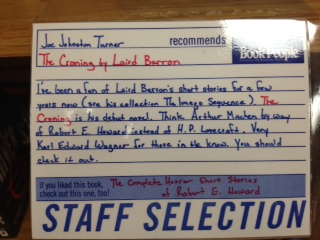 Joe Johnston Turner recommends
BookPeople
The Croning by Laird Barron
I've been a fan of Laird Barron's short stories for a few
years now (see his collection The Imago Sequence). The
Croning is his debut novel. Think Arthur Machen by way
of Robert E. Howard instead of H.P. Lovecraft. Very
Karl Edward Wagner for those in the know. You should
check it out.
if you liked this book, The Complete Horror Short Stories
check out this one, too! of Robert E. Howard
STAFF SELECTION